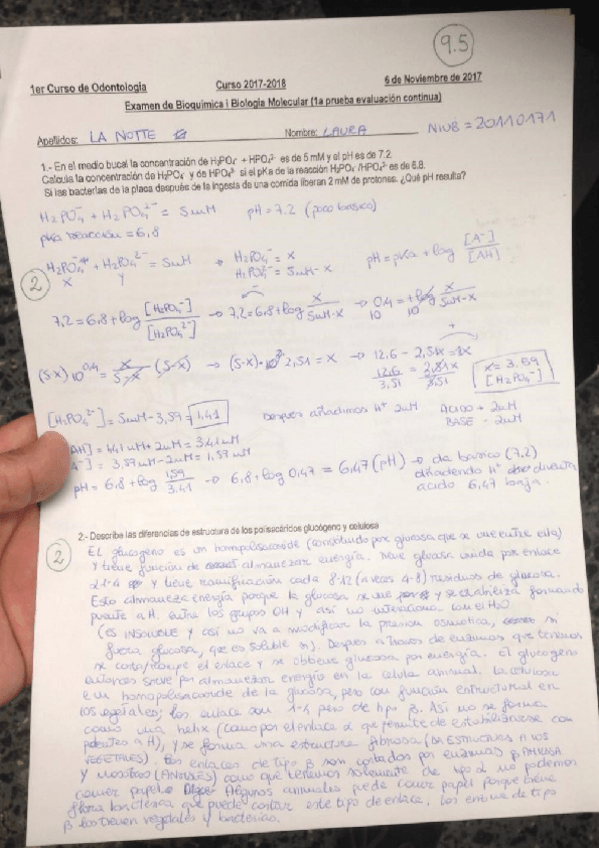 9.5
1er Curso de Odontología Curso 2017-2018 6 de Noviembre de 2017
Examen de Bioquímica i Biología Molecular (1a prueba evaluación continua)
Apellidos: LA NOTTE Nombre: LAURA NIUB = 20110171
1.- En el medio bucal la concentración de H₂PO₄⁻ + HPO₄²⁻ es de 5 mM y el pH es de 7.2.
Calcula la concentración de H₂PO₄⁻ y de HPO₄²⁻ si el pKa de la reacción H₂PO₄⁻/HPO₄²⁻ es de 6.8.
Si las bacterias de la placa después de la ingesta de una comida liberan 2 mM de protones. ¿Qué pH resulta?
H₂PO₄⁻ + H₂PO₄²⁻ = 5mM pH = 7.2 (poco basico)
pKa reacción = 6,8
H₂PO₄⁻ + H₂PO₄²⁻ = 5mM → H₂PO₄⁻ = x pH = pKa + log [A⁻]/[AH]
x y = 5mM-x
2
7.2 = 6,8 + log [H₂PO₄⁻]/[H₂PO₄²⁻] → 7,2 = 6,8 + log x/5mM-x → 0,4 = + log x/5mM-x
10 10
(5-x) 10^0,4 = x/5-x (5-x) → (5-x) · 2,51 = x → 12,6 - 2,51x = x
12,6/3,51 = x = 3,59
[H₂PO₄⁻]
[H₂PO₄²⁻] = 5mM - 3,59 = 1,41 Despues añadimos H⁺ 2mM ACIDO + 2mM
BASE - 2mM
AH] = 1,41 mM + 2mM = 3,41 mM
A⁻] = 3,59 mM - 2mM = 1,59 mM
pH = 6,8 + log 1,59/3,41 → 6,8 + log 0,47 = 6,47 (pH) → da basico (7,2)
añadendo H⁺ diventa
acido 6,47 baja.
2.- Describe las diferencias de estructura de los polisacáridos glucógeno y celulosa
2
El glucogeno es un homopolisacaride (constituido por glucosa que se une entre ella)
y tiene función de almanezar energía. glucosa unida por enlace
α 1-4 y tiene ramificación cada 8-12 (a veces 4-8) residuos de glucosa.
Esto almaneza energía porque la glucosa se y se estabiliza formando
puente a H. entre los grupos OH y así no interaciona con el H₂O
(es INSOLUBLE y así no va a modificar la presion osmotica, si
fuera glucosa, que es soluble si). Despues a traves de enzumas que tenemos
se corta/rompe el enlace y se obtiene glucosa por energía. El glucogeno
entonces sirve por almanezar energío en la celula animal. La celulosa
è un homopolisacaride de la glucosa, pero con función estructural en
los vegetales; los enlace son 1-4 pero de tipo β. Así no se forma
como una helix (como por el enlace α que permite de estabilizarse con
puentes a H), y se forma una estructura fibrosa (DA ESTRUCTURA A LOS
VEGETALES). Los enlaces de tipo β son cortados por enzumas β
y nosotros (ANIMALES) como que tenemos solamente de tipo α no podemos
comer papel. Algunos animales puede comer papel porque tiene
flora bacterica que puede cortar este tipo de enlace. Los enzime de tipo
β los tienen vegetales y bacterias.